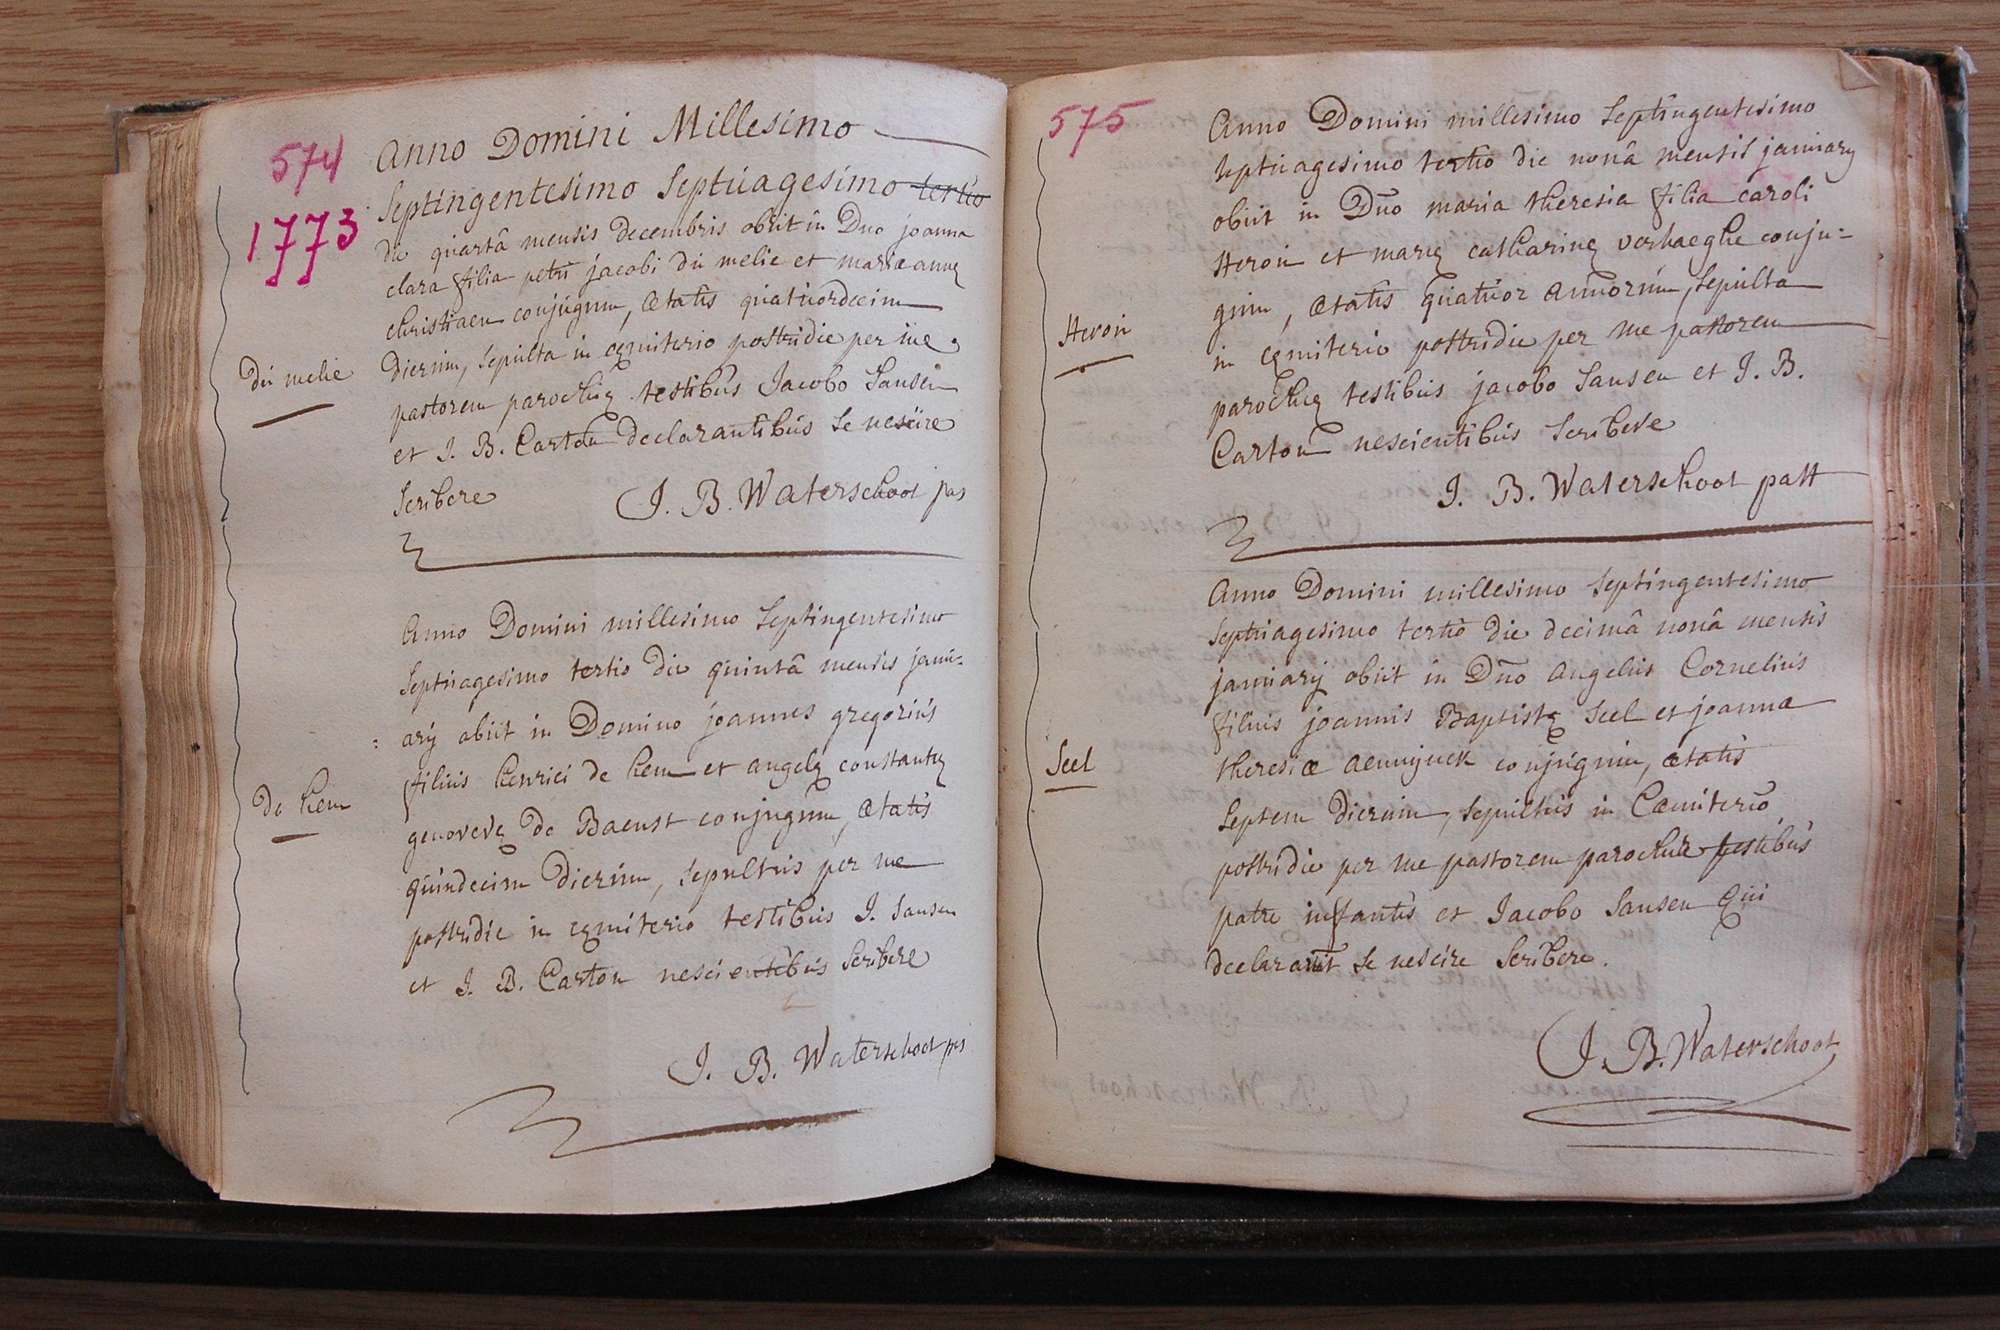 574
1773
Anno Domini Millesimo
Septingentesimo Septuagesimo tertio
die quartâ mensis decembris obiit in Dno joanna
clara filia petri jacobi du melie et mariae annę
christiaen conjugum, ætatis quatuordecim
Du melie
dierum, sepulta in cęmiterio postridie per me
pastorem parochię testibus Jacobo Sansen
et J. B. Carton declarantibus se nescire
scribere J. B. Waterschoot pas
Anno Domini millesimo Septingentesimo
Septuagesimo tertio die quintâ mensis janu=
arij obiit in Domino joannes gregorius
De hem
filius henrici de hem et angelę constantię
genovevę de Baenst conjugum, ætatis
quindecim dierum, sepultus per me
postridie in cęmiterio testibus J. Sansen
et J. B. Carton nescientibus scribere
J. B. Waterschoot pas
575
Anno Domini millesimo Septingentesimo
septuagesimo tertio die nonâ mensis januarij
obiit in Dno maria theresia filia caroli
Heron et marię catharinę verhaeghe conju=
gum, ætatis quatuor annorum, sepulta
Heron
in cęmiterio postridie per me pastorem
parochię testibus jacobo Sansen et J. B.
Carton nescientibus scribere
J. B. Waterschoot past
Anno Domini millesimo Septingentesimo
septuagesimo tertio die decimâ nonâ mensis
januarij obiit in Dno Angelus Cornelius
filius joannis Baptistę Seel et joannæ
Seel
theresiæ conjugum, ætatis
septem dierum, sepultus in Cæmiterio
postridie per me pastorem parochiæ testibus
patre infantis et Jacobo Sansen qui
declarant se nescire scribere.
J. B. Waterschoot